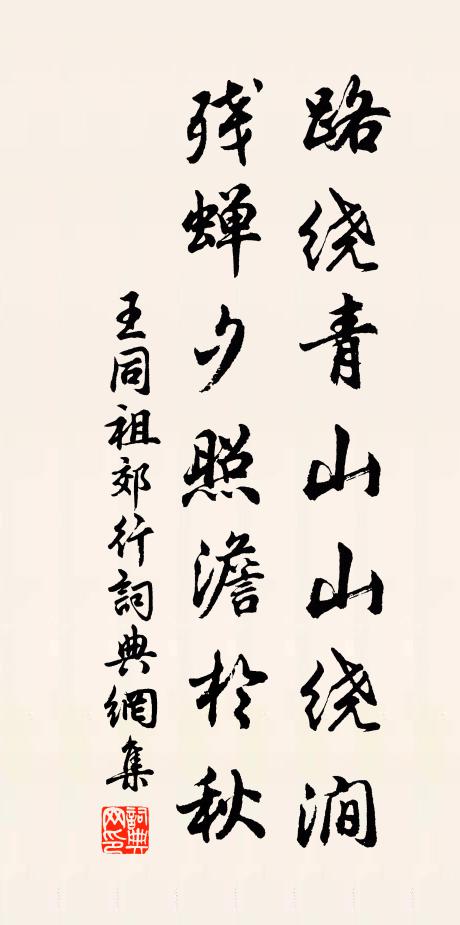 路绕青山山绕涧
残蝉夕照澹於秋
王同祖郊行詞典網集
詞典网印